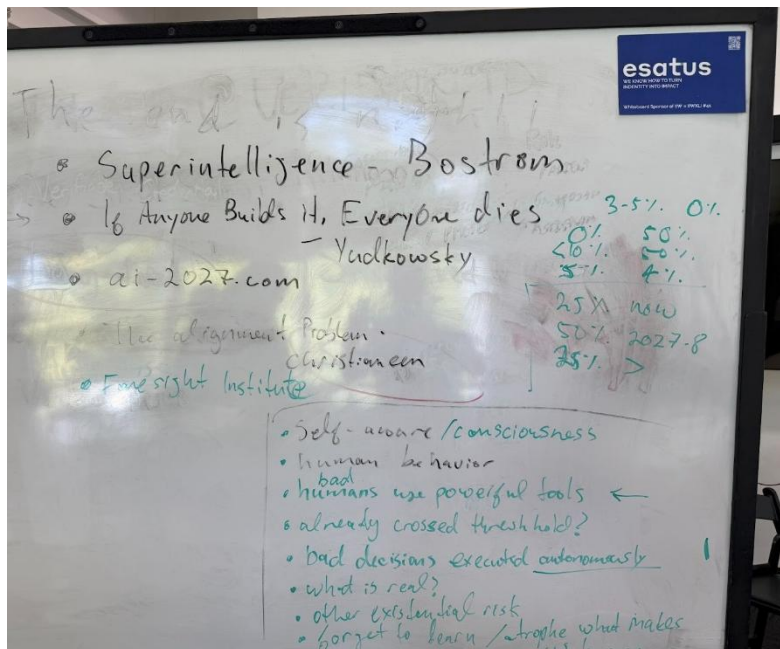 esatus
WE KNOW HOW TO TURN
INDENTITY INTO IMPACT
The end is
• Superintelligence - Bostrom
• If Anyone Builds it, Everyone dies
- Yudkowsky
• ai-2027.com
• The alignment Problem -
Christianeen
• Foresight Institute
3-5%. 0%.
0% 50%
<10%. 50%.
5%. 4%.
25% now
50% 2027-8
25% >
• Self-aware/consciousness
• human behavior
bad
• humans use powerful tools ←
• already crossed threshhold?
• bad decisions executed autonomously
• what is real?
• other existential risk
• forget to learn / what makes